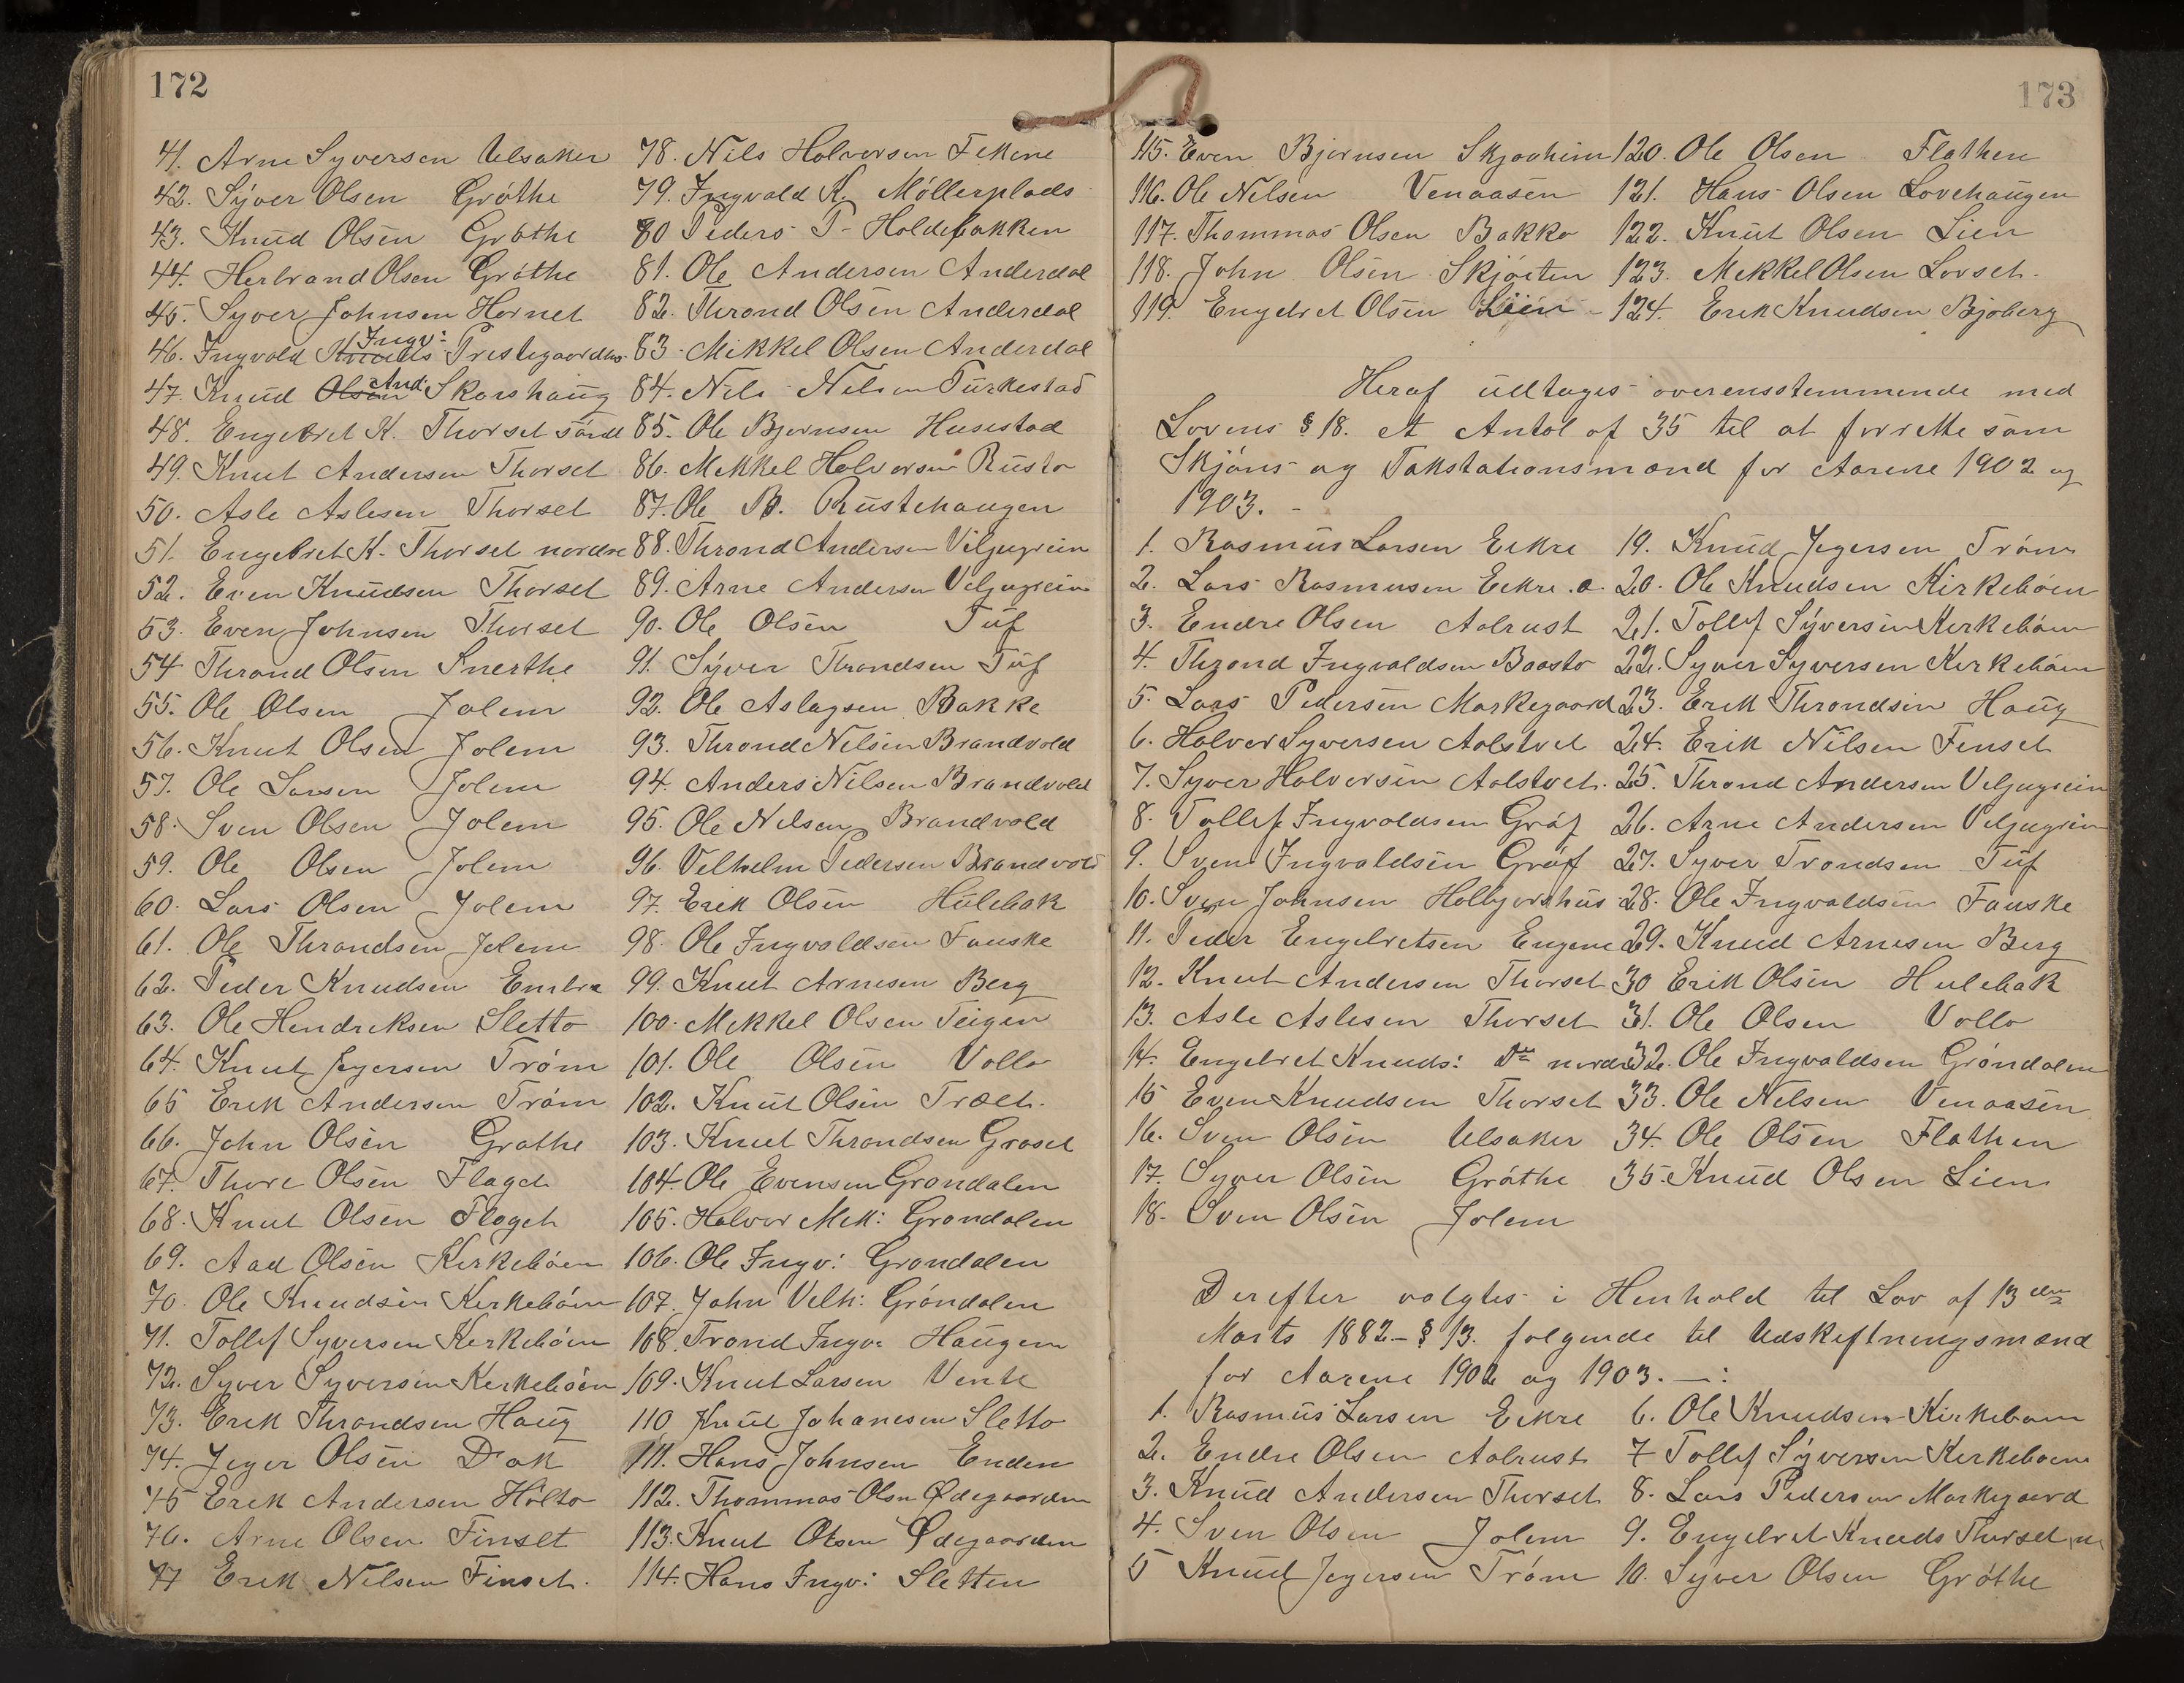 172
41. Arne Syversen Ulsaker
42. Syver Olsen Grøthe
43. Knud Olsen Grøthe
44. Herbrand Olsen Grøthe
45. Syver Johnsen Hornet
46. Ingvold Knuds Ingv: Prestegaardhs.
47. Knud Olsen And. Skarshaug
48. Engebret K. Thorset söndr
49. Knut Andersen Thorset
50. Asle Aslesen Thorset
51. Engebret K. Thorset nordre
52. Even Knudsen Thorset
53. Even Johnsen Thorset
54 Thrond Olsen Snerthe
55. Ole Olsen Jolem
56. Knut Olsen Jolem
57. Ole Larsen Jolem
58. Sven Olsen Jolem
59. Ole Olsen Jolem
60. Lars Olsen Jolem
61. Ole Throndsen Jolem
62. Peder Knudsen Embre
63. Ole Hendriksen Sletto
64. Knut Jegersen Trøm
65 Erik Andersen Trøm
66. John Olsen Grøthe
67. Thore Olsen Flaget
68. Knut Olsen Flaget
69. Aad Olsen Kirkebøen
70. Ole Knudsen Kirkebøen
71. Tollef Syversen Kirkebøen
72. Syver Syversen Kirkebøen
73. Erik Throndsen Haug
74. Jeger Olsen Dok
75 Erik Andersen Holto
76. Arne Olsen Finset
77 Erik Nilsen Finset.
78. Nils Halvorsen Fekene
79. Ingvald K. Møllerplads
80 Peders P- Holdebakken
81. Ole Andersen Anderdal
82. Thrond Olsen Anderdal
83. Mikkel Olsen Anderdal
84. Nils Nilsen Turkestad
85. Ole Bjørnsen Husestad
86. Mikkel Halvorsen Rusto
87. Ole B. Rustehaugen
88. Thrond Andersen Viljugrein
89. Arne Andersen Viljugrein
90. Ole Olsen Tuf
91. Syver Throndsen Tuf
92. Ole Aslagsen Bakke
93. Thrond Nilsen Brandvold
94. Anders Nilsen Brandvold
95. Ole Nilsen Brandvold
96. Vilhelm Pedersen Brandvold
97. Erik Olsen Hulebak
98. Ole Ingvaldsen Fauske
99. Knut Arnesen Berg
100. Mikkel Olsen Teigen
101. Ole Olsen Vollo
102. Knut Olsen Træet.
103. Knut Throndsen Groset
104. Ole Evensen Grøndalen
105. Halvor Mik: Grøndalen
106. Ole Ingv: Grøndalen
107. John Vilh: Grøndalen
108. Trond Ingv: Haugen
109. Knut Larsen Vente
110 Knut Johanesen Sletto
111. Hans Johnsen Enden
112. Thommas Olsn Ødegaarden
113. Knut Olsen Ødegaarden
114. Hans Ingv: Sletten
173
115. Even Bjørnsen Skjoaheim
116. Ole Nilsen Venaasen
117. Thommas Olsen Bakko
118. John Olsen Skjøiten
119. Engebret Olsen Lien
120. Ole Olsen Flathen
121. Hans Olsen Lovehaugen
122. Knut Olsen Lien
123. Mikkel Olsen Lovset.
124. Erik Knudsen Bjøberg
Heraf udtages overensstemmende med
Lovens § 18. et Antal af 35 til at forrette som
Skjøns- og Takstationsmænd for Aarene 1902 og
1903. -
1. Rasmus Larsen Eikre
2. Lars Rasmusen Eikre. a.
3. Endre Olsen Aalrust
4. Thrond Ingvaldsen Baasto
5. Lars Pedersen Markegaard
6. Halvor Syversen Aalstvet
7. Syver Halvorsen Aalstvet.
8. Tollef Ingvoldsen Gråf
9. Sven Ingvaldsen Gråf
10. Sven Johnsen Holbjørhus
11. Peder Engebretsen Engene
12. Knut Andersen Thorset
13. Asle Aslesen Thorset
14. Engebret Knuds: Do nordr
15 Even Knudsen Thorset
16. Sven Olsen Ulsaker
17. Syver Olsen Grøthe
18. Sven Olsen Jolem
19. Knud Jegersen Trøm
20. Ole Knudsen Kirkebøen
21. Tollef Syversen Kirkebøen
22. Syver Syversen Kirkebøen
23. Erik Throndsen Haug
24. Erik Nilsen Finset
25. Thrond Andersen Viljugrein
26. Arne Andersen Viljugrein
27. Syver Trondsen Tuf
28. Ole Ingvaldsen Fauske
29. Knud Arnesen Berg
30 Erik Olsen Hulebak
31. Ole Olsen Vollo
32. Ole Ingvaldsen Grøndalen
33. Ole Nilsen Venaasen
34. Ole Olsen Flathen
35. Knud Olsen Lien
Derefter valgtes i Henhold til Lov af 13den
Marts 1882 - § 13. følgende til Udskiftningsmænd
for Aarene 1902 og 1903. —:
1. Rasmus Larsen Eikre
2. Endre Olsen Aalrust
3. Knud Andersen Thorset
4. Sven Olsen Jolem
5 Knud Jegersen Trøm
6. Ole Knudsen Kirkebøen
7 Tollef Syversen Kirkebøen
8. Lars Pedersen Markegaard
9. Engebret Knuds Thorset n.
10. Syver Olsen Grøthe